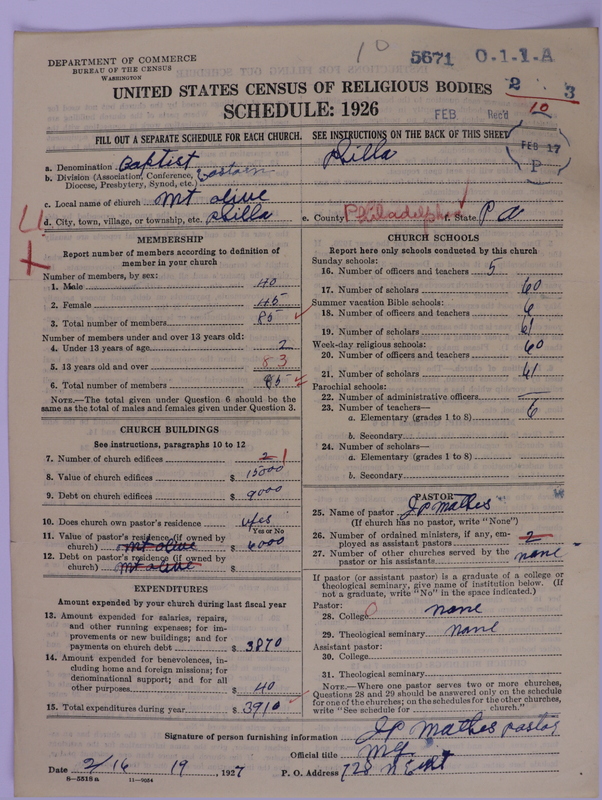 10 5671 0-1-1-A
DEPARTMENT OF COMMERCE
BUREAU OF THE CENSUS
WASHINGTON
2 3
UNITED STATES CENSUS OF RELIGIOUS BODIES
10
SCHEDULE: 1926
FEB Rec'd
FILL OUT A SEPARATE SCHEDULE FOR EACH CHURCH. SEE INSTRUCTIONS ON THE BACK OF THIS SHEET
FEB 17
P
a. Denomination Baptist Philla
b. Division (Association, Conference, Eastern
Diocese, Presbytery, Synod, etc.)
c. Local name of church Mt olive
d. City, town, village, or township, etc. Philla e. County Philadelphia f. State Pa
MEMBERSHIP
Report number of members according to definition of
member in your church
Number of members, by sex:
1. Male 40
2. Female 45
3. Total number of members 85
Number of members under and over 13 years old:
4. Under 13 years of age 2
5. 13 years old and over 83
6. Total number of members 85
NOTE.—The total given under Question 6 should be the
same as the total of males and females given under Question 3.
CHURCH BUILDINGS
See instructions, paragraphs 10 to 12
7. Number of church edifices 2 1
8. Value of church edifices $ 15000
9. Debt on church edifices $ 9000
10. Does church own pastor's residence yes
(Yes or No)
11. Value of pastor's residence (if owned by
church) Mt olive $ 6000
12. Debt on pastor's residence (if owned by
church) Mt olive $
EXPENDITURES
Amount expended by your church during last fiscal year
13. Amount expended for salaries, repairs,
and other running expenses; for im-
provements or new buildings; and for
payments on church debt $ 3870
14. Amount expended for benevolences, in-
cluding home and foreign missions; for
denominational support; and for all
other purposes $ 40
15. Total expenditures during year $ 3910
CHURCH SCHOOLS
Report here only schools conducted by this church
Sunday schools:
16. Number of officers and teachers 5
17. Number of scholars 60
Summer vacation Bible schools:
18. Number of officers and teachers 6
19. Number of scholars 61
Week-day religious schools:
20. Number of officers and teachers 60
21. Number of scholars 61
Parochial schools:
22. Number of administrative officers
23. Number of teachers—
a. Elementary (grades 1 to 8) 6
b. Secondary
24. Number of scholars—
a. Elementary (grades 1 to 8)
b. Secondary
PASTOR
25. Name of pastor J P Mathes
(If church has no pastor, write "None")
26. Number of ordained ministers, if any, em-
ployed as assistant pastors 2
27. Number of other churches served by the
pastor or his assistants none
If pastor (or assistant pastor) is a graduate of a college or
theological seminary, give name of institution below. (If
not a graduate, write "No" in the space indicated.)
Pastor:
28. College none
29. Theological seminary none
Assistant pastor:
30. College
31. Theological seminary
NOTE.—Where one pastor serves two or more churches,
Questions 28 and 29 should be answered only on the schedule
for one of the churches; on the schedules for the other churches,
write "See schedule for church."
Signature of person furnishing information J P Mathes pastor
Official title
Date 2/16 19, 1927 P. O. Address 728 N
8-5518 a 11-9054